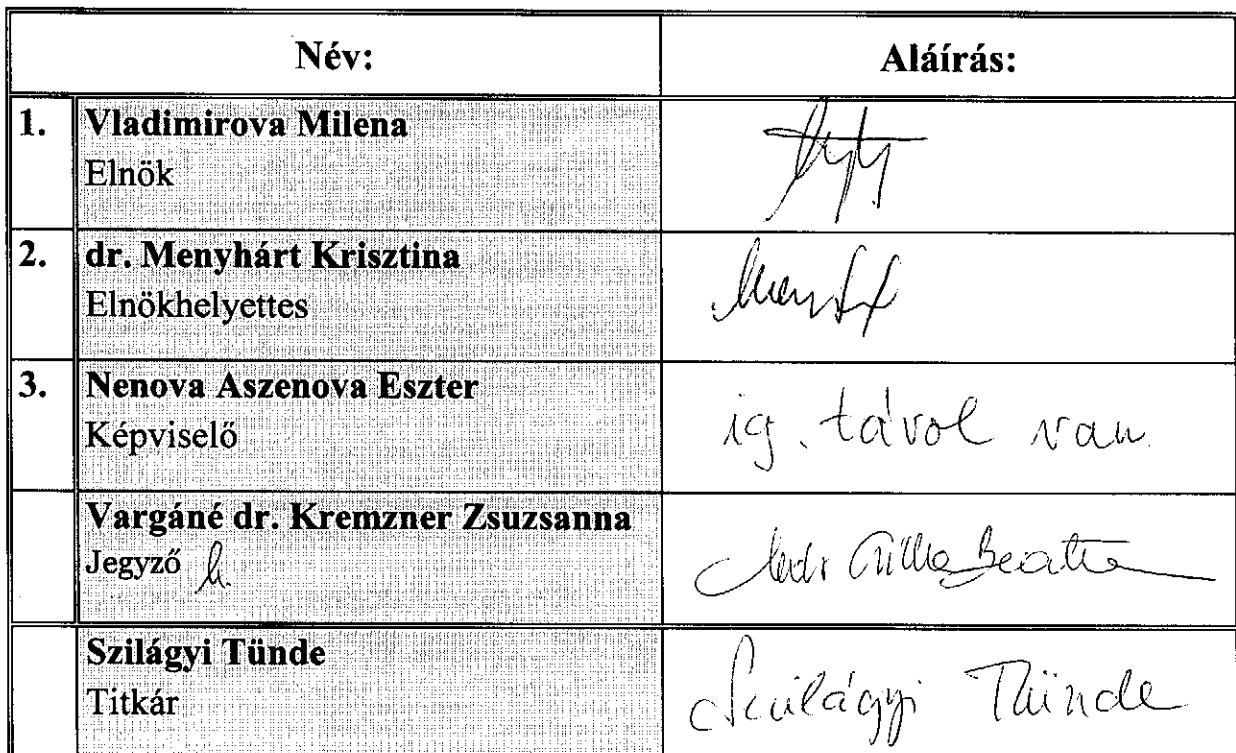 Név: Aláírás:
1. Vladimirova Milena
Elnök
2. dr. Menyhárt Krisztina
Elnökhelyettes
3. Nenova Aszenova Eszter
Képviselő
ig. távol van.
Vargáné dr. Kremzner Zsuzsanna
Jegyző h.
Beáta
Szilágyi Tünde
Titkár
Szilágyi Tünde